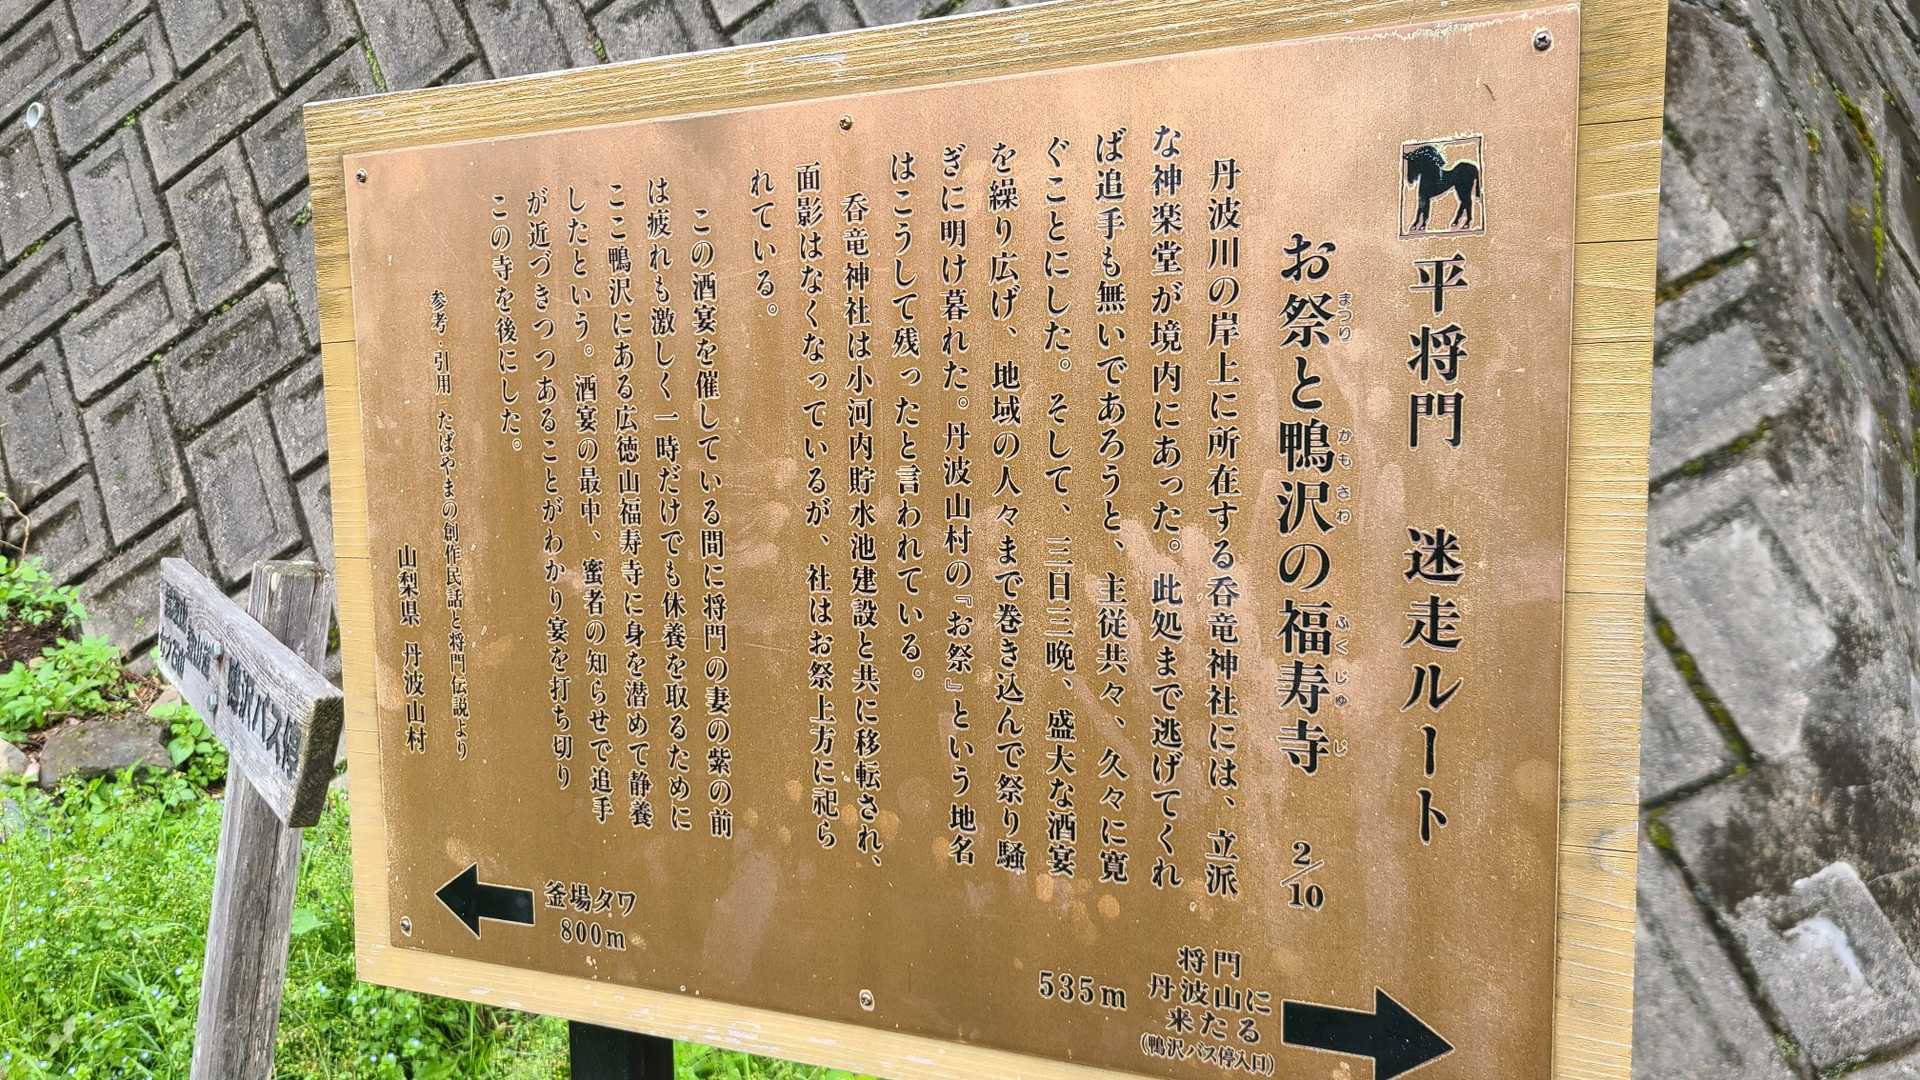 平将門 迷走ルート
お祭と鴨沢の福寿寺 2/10
まつり かもさわ ふくじゅじ
丹波川の岸上に所在する呑竜神社には、立派
な神楽堂が境内にあった。此処まで逃げてくれ
ば追手も無いであろうと、主従共々、久々に寛
ぐことにした。そして、三日三晩、盛大な酒宴
を繰り広げ、地域の人々まで巻き込んで祭り騒
ぎに明け暮れた。丹波山村の『お祭』という地名
はこうして残ったと言われている。
呑竜神社は小河内貯水池建設と共に移転され、
面影はなくなっているが、社はお祭上方に祀ら
れている。
この酒宴を催している間に将門の妻の紫の前
は疲れも激しく一時だけでも休養を取るために
ここ鴨沢にある広徳山福寿寺に身を潜めて静養
したという。酒宴の最中、蜜者の知らせで追手
が近づきつつあることがわかり宴を打ち切り
この寺を後にした。
参考・引用 たばやまの創作民話と将門伝説より
山梨県 丹波山村
釜場タワ
800m
将門
丹波山に
来たる
(鴨沢バス停入口)
535m
鴨沢バス停